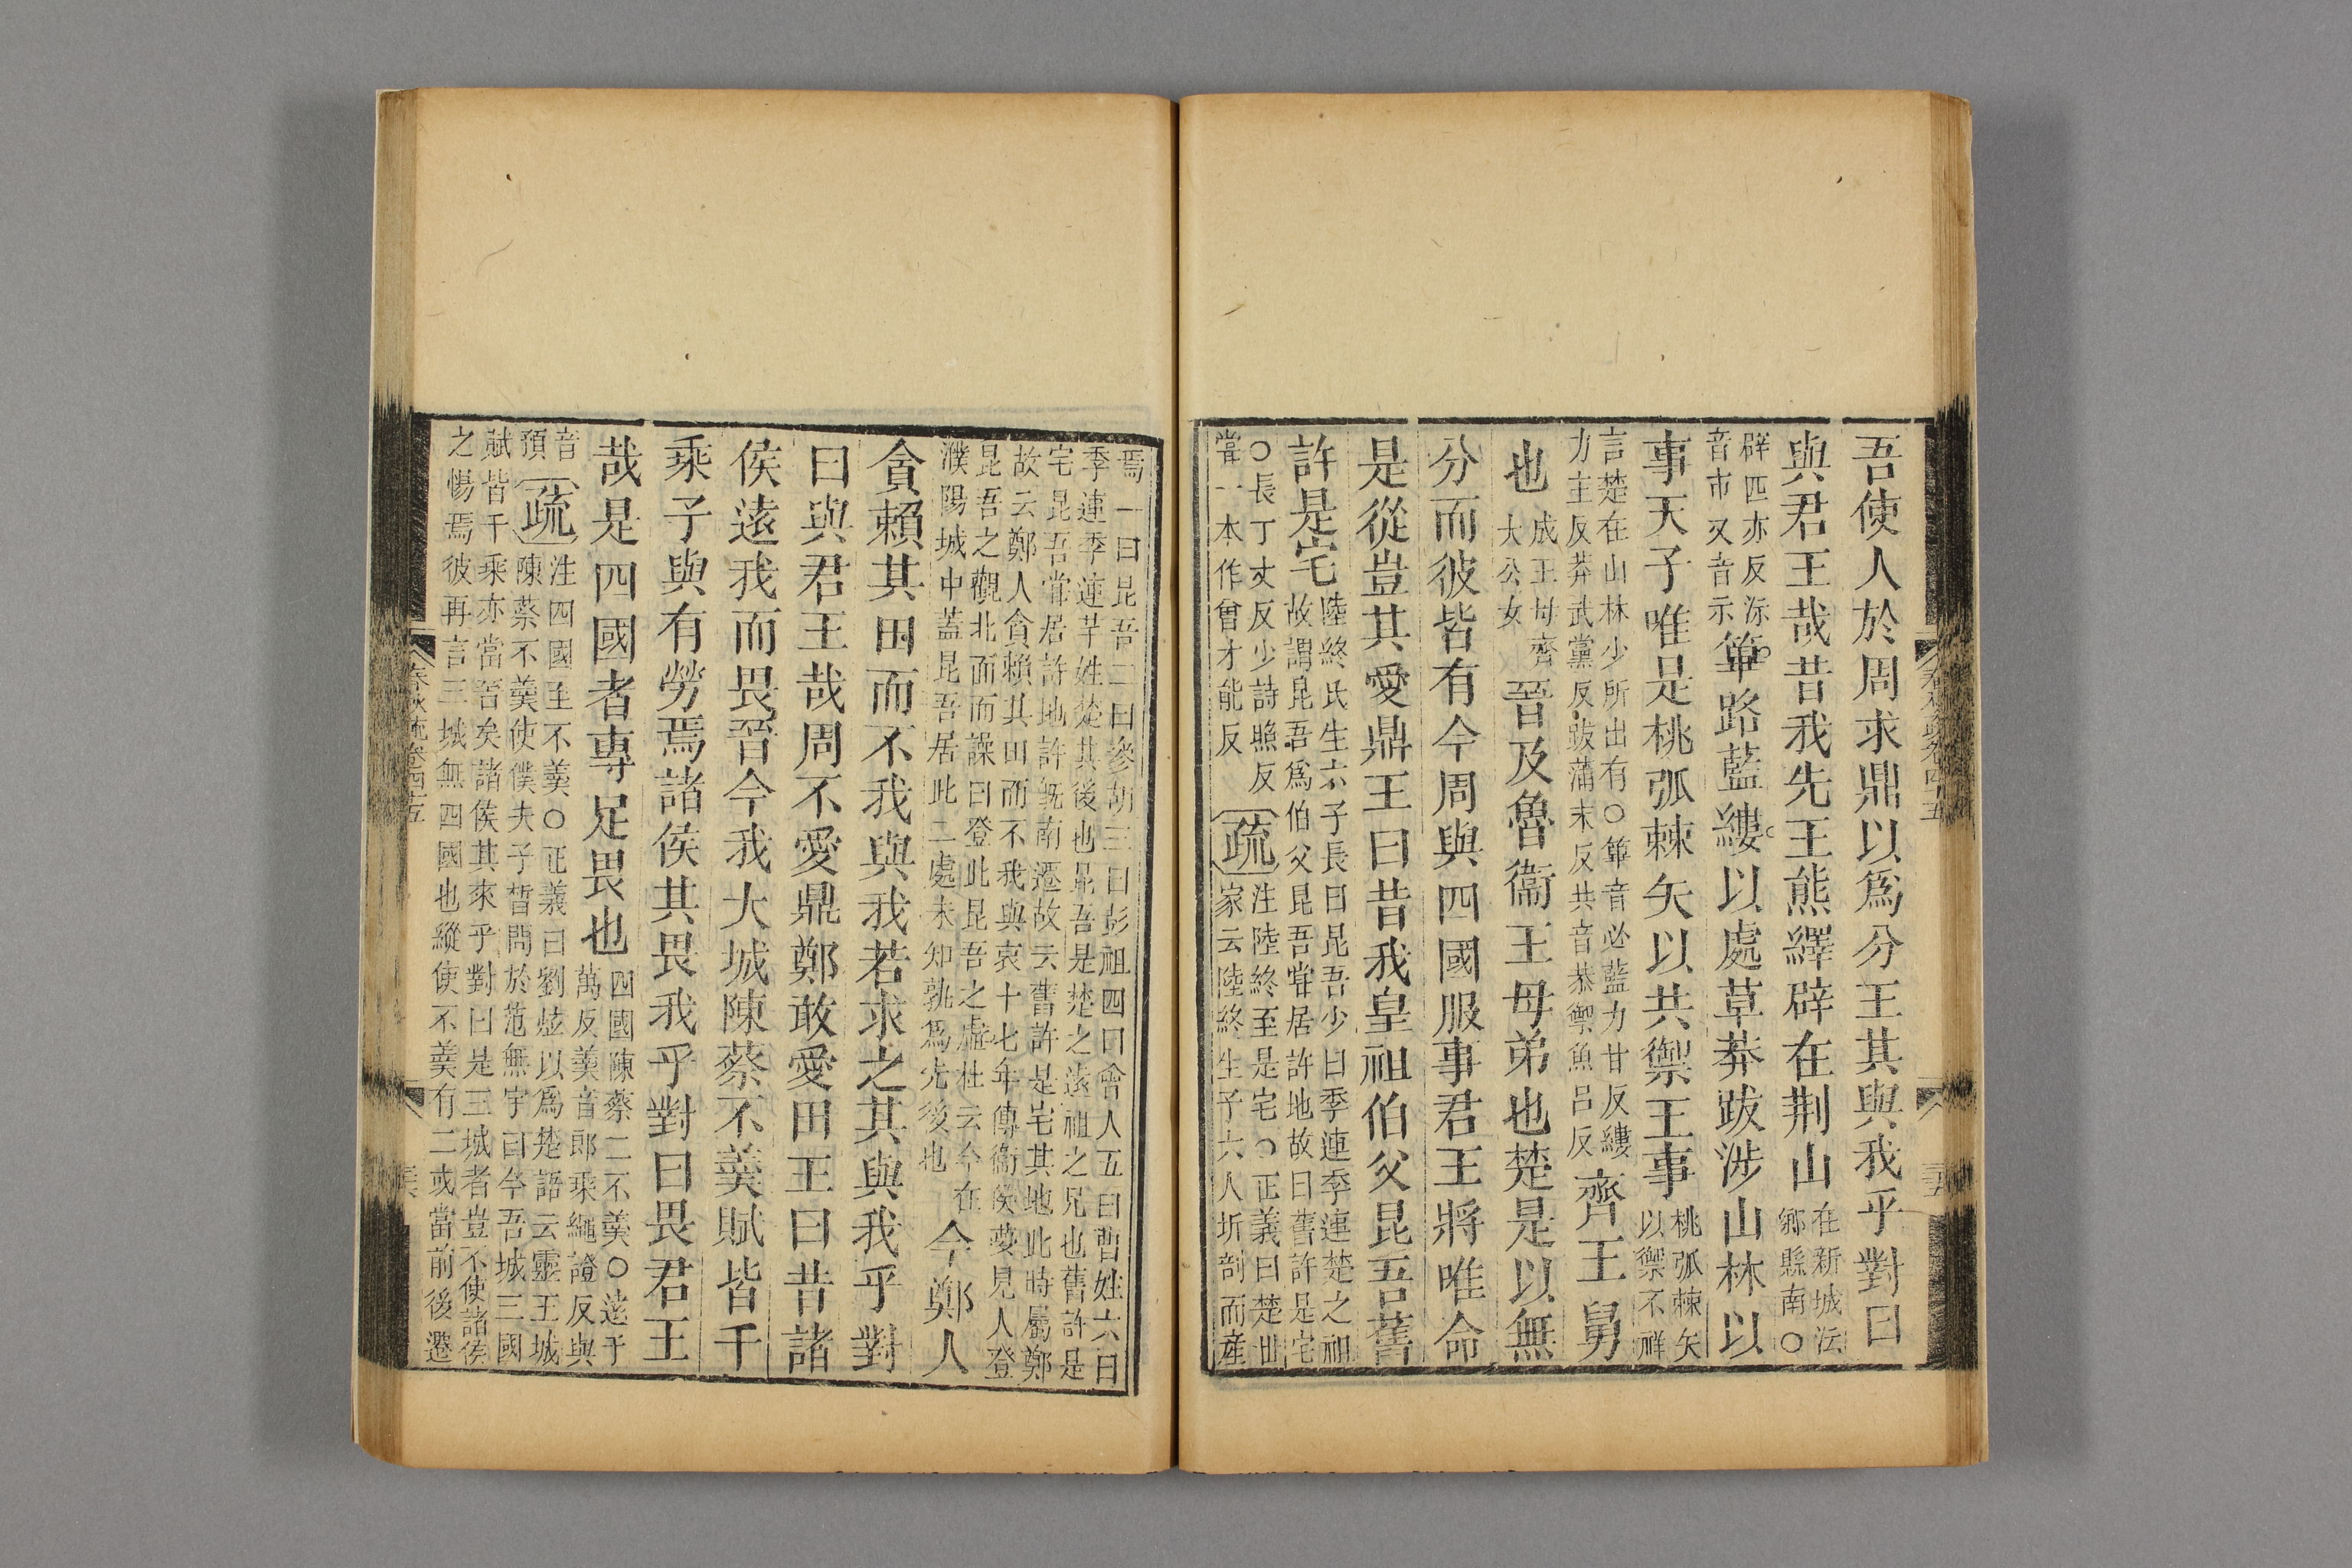 吾使人於周求鼎以爲分王其與我乎對曰
與君王哉昔我先王熊繹辟在荆山在新城沶鄉縣南○
辟匹亦反沶音市又音示篳路藍縷以處草莽跋涉山林以
事天子唯是桃弧棘矢以共禦王事桃弧棘矢以禦不祥
言楚在山林少所出有○篳音必藍力甘反縷力主反莽武黨反跋蒲末反共音恭禦魚呂反齊王舅
也成王母齊大公女晉及魯衞王母弟也楚是以無
分而彼皆有今周與四國服事君王將唯命
是從豈其愛鼎王曰昔我皇祖伯父昆吾舊
許是宅陸終氏生六子長曰昆吾少曰季連季連楚之祖故謂昆吾爲伯父昆吾嘗居許地故曰舊許是宅
○長丁丈反少詩照反嘗一本作曾才能反疏注陸終至是宅○正義曰楚世家云陸終生子六人坼剖而産
焉一曰昆吾二曰參胡三曰彭祖四曰會人五曰曹姓六曰季連季連芊姓楚其後也昆吾是楚之遠祖之兄也舊許是
宅昆吾嘗居許地許既南遷故云舊許是宅其地此時屬鄭故云鄭人貪賴其田而不我與哀十七年傳衞侯夢見人登
昆吾之觀北面而譟曰登此昆吾之虛杜云今在濮陽城中蓋昆吾居此二處未知孰爲先後也今鄭人
貪賴其田而不我與我若求之其與我乎對
曰與君王哉周不愛鼎鄭敢愛田王曰昔諸
侯遠我而畏晉今我大城陳蔡不羹賦皆千
乘子與有勞焉諸侯其畏我乎對曰畏君王
哉是四國者專足畏也四國陳蔡二不羹○遠于萬反羹音郎乘繩證反與
音預疏注四國至不羹○正義曰劉炫以爲楚語云靈王城陳蔡不羹使僕夫子晳問於范無宇曰今吾城三國
賦皆千乘亦當晉矣諸侯其來乎對曰是三城者豈不使諸侯之惕焉彼再言三城無四國也縱使不羹有二或當前後遷
春秋疏卷四十五